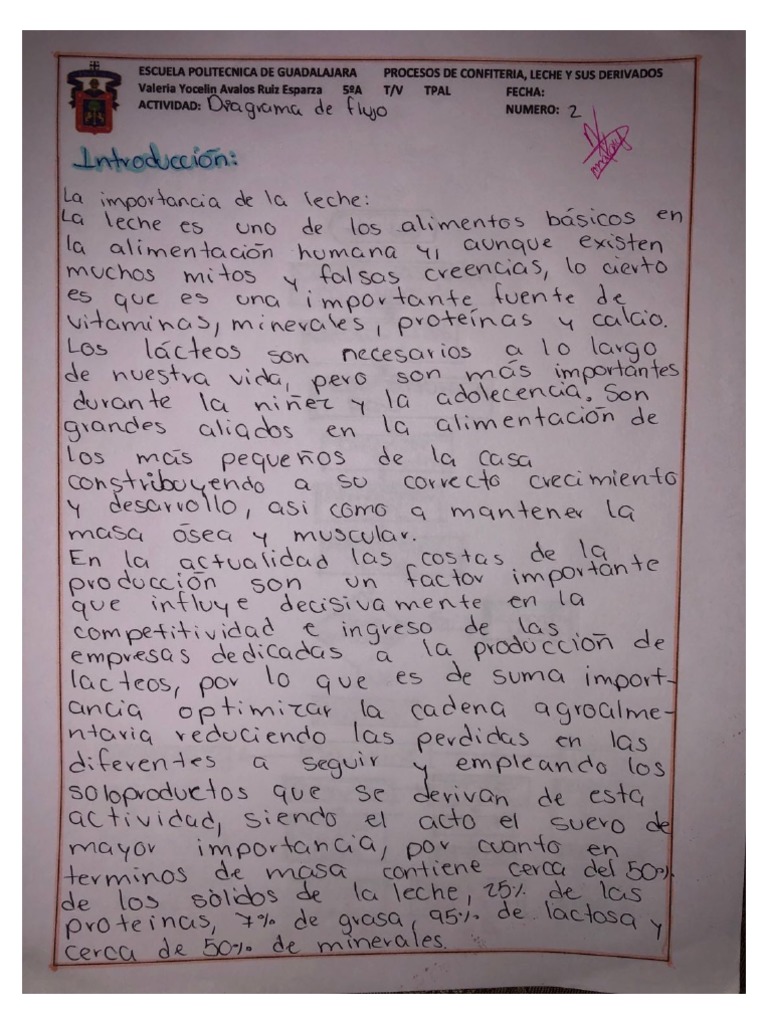 ESCUELA POLITECNICA DE GUADALAJARA PROCESOS DE CONFITERIA, LECHE Y SUS DERIVADOS
Valeria Yocelin Avalos Ruiz Esparza 5ºA T/V TPAL FECHA:
ACTIVIDAD: Diagrama de flujo NUMERO: 2
Introducción:
La importancia de la leche:
La leche es uno de los alimentos básicos en
la alimentación humana y, aunque existen
muchos mitos y falsas creencias, lo cierto
es que es una importante fuente de
vitaminas, minerales, proteínas y calcio.
Los lácteos son necesarios a lo largo
de nuestra vida, pero son más importantes
durante la niñez y la adolecencia. Son
grandes aliados en la alimentación de
los más pequeños de la casa
constribuyendo a su correcto crecimiento
y desarrollo, asi como a mantener la
masa ósea y muscular.
En la actualidad las costas de la
producción son un factor importante
que influye decisivamente en la
competitividad e ingreso de las
empresas dedicadas a la producción de
lacteos, por lo que es de suma import-
ancia optimizar la cadena agroalme-
ntaria reduciendo las perdidas en las
diferentes a seguir y empleando los
soloproductos que se derivan de esta
actividad, siendo el acto el suero de
mayor importancia, por cuanto en
terminos de masa contiene cerca del 50%
de los sólidos de la leche, 25% de las
proteinas, 7% de grasa, 95% de lactosa y
cerca de 50% de minerales.